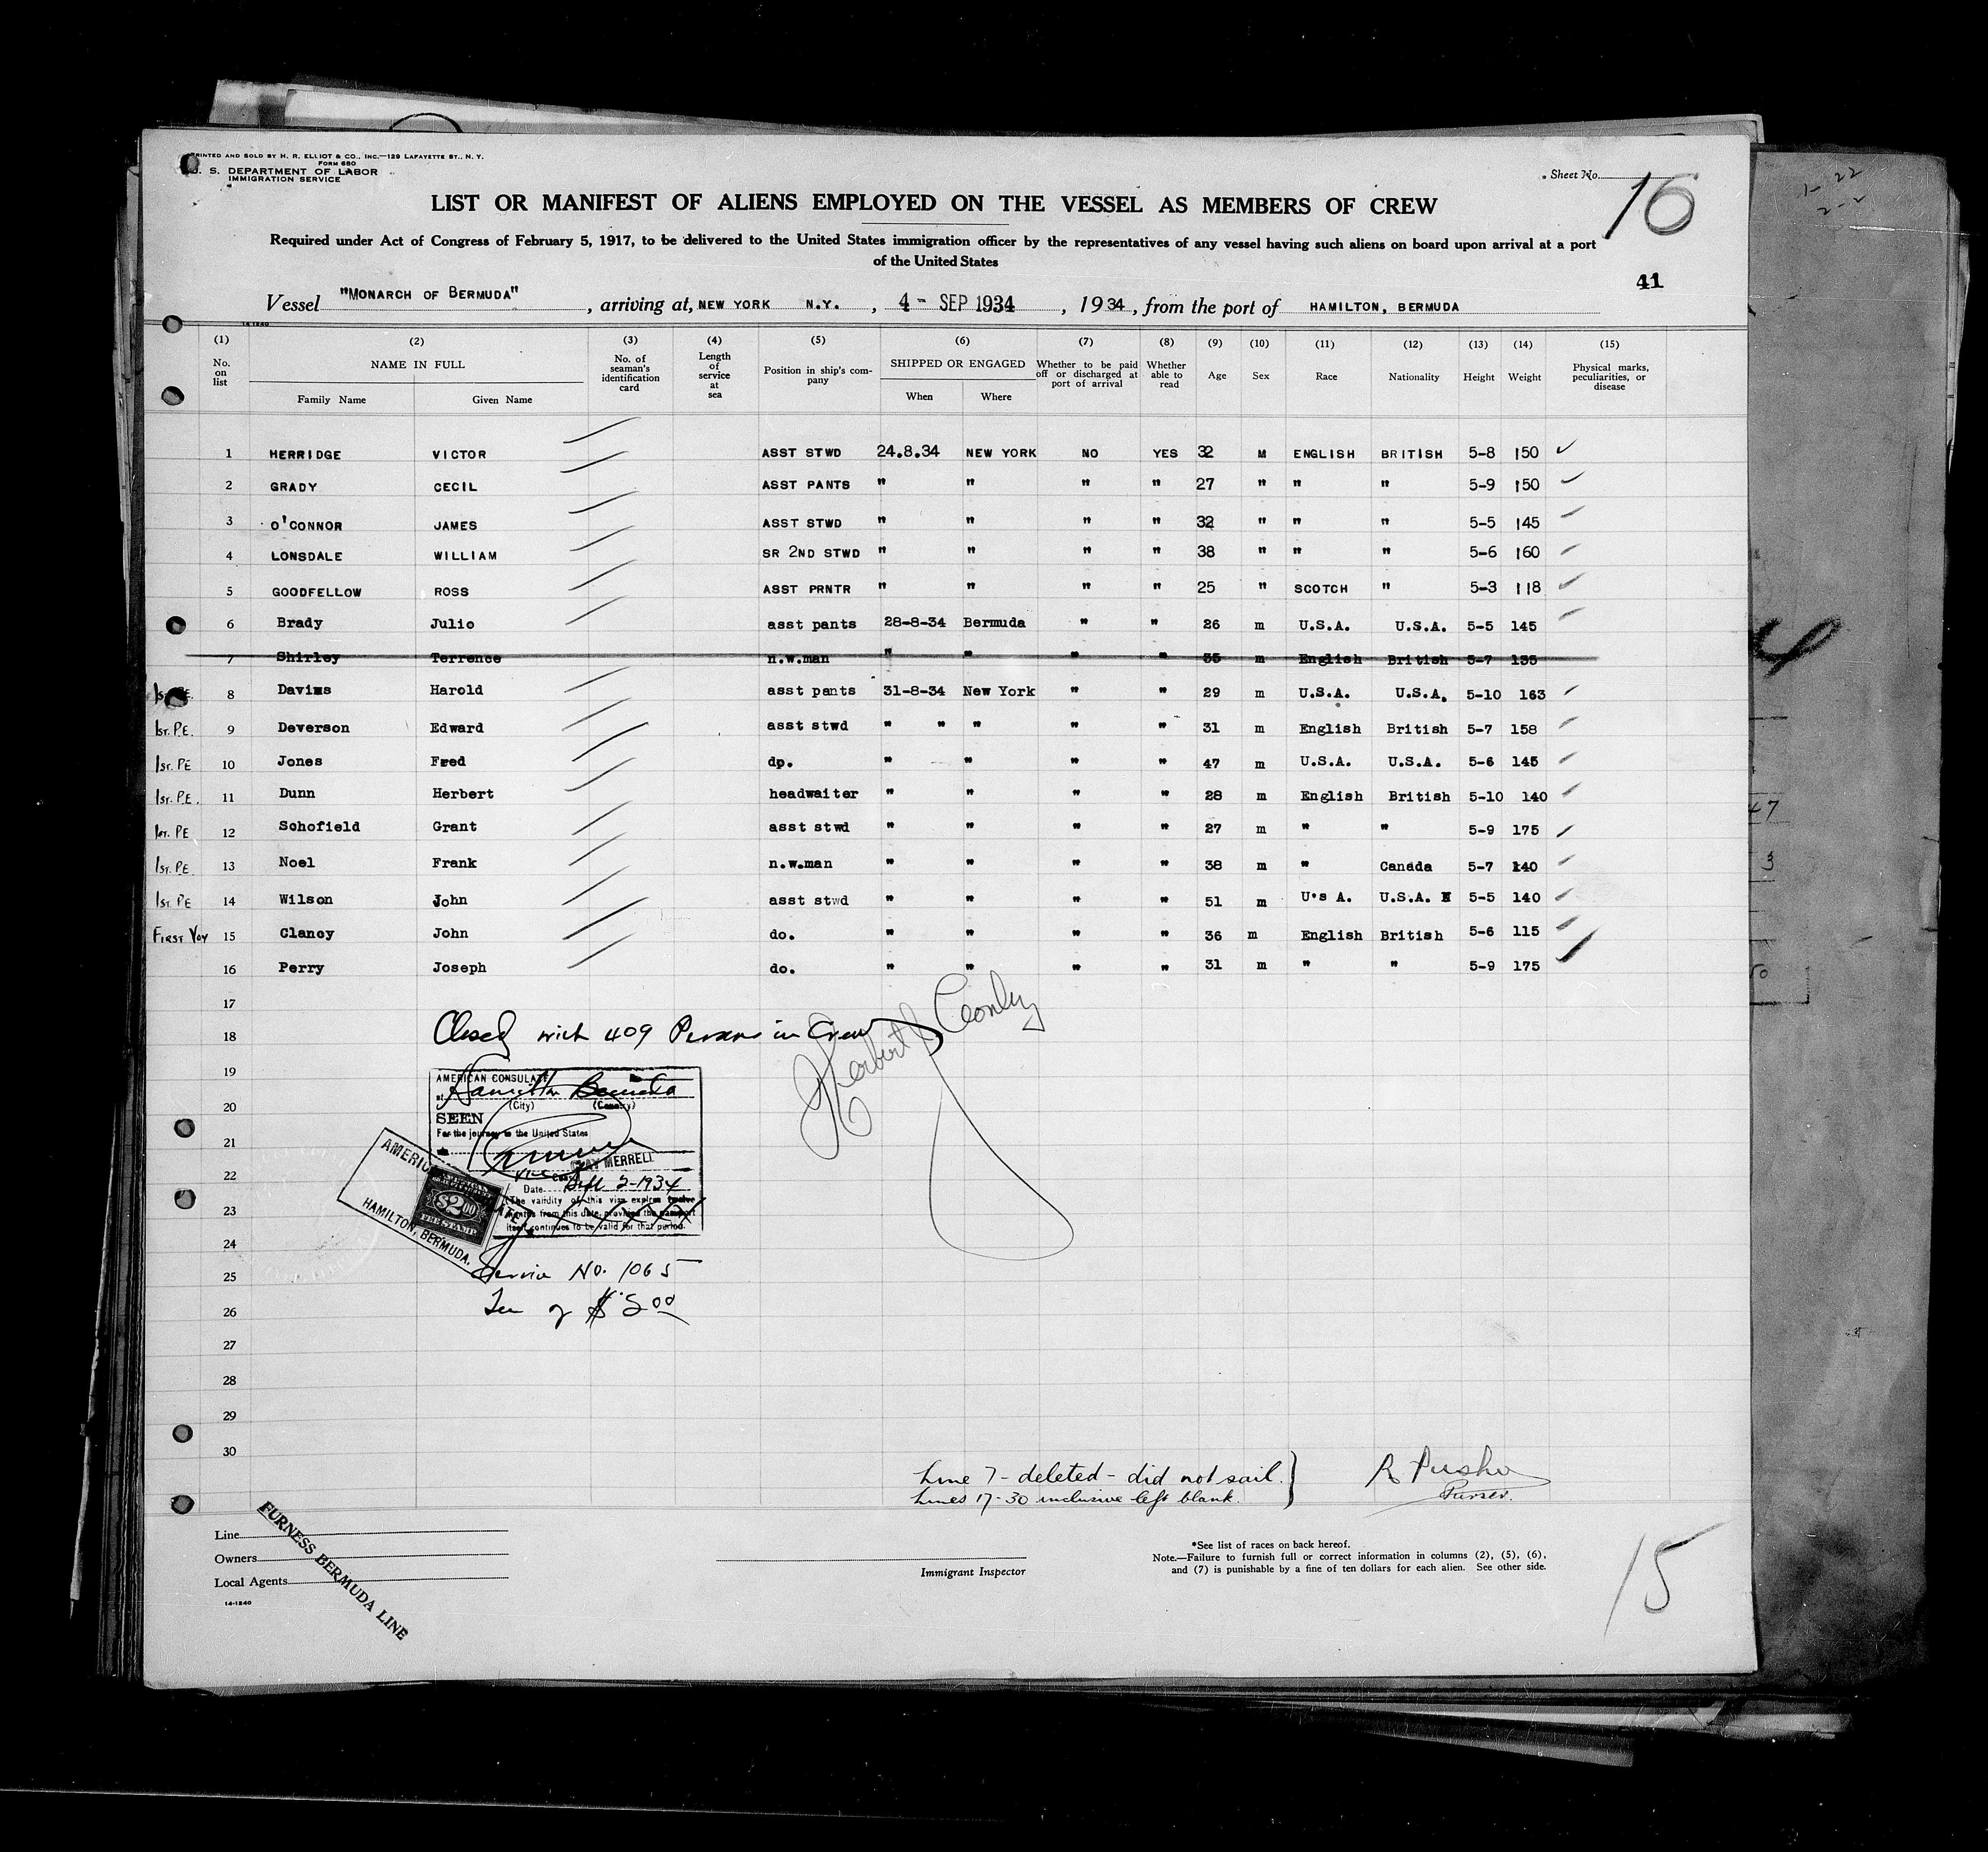 PRINTED AND SOLD BY H. R. ELLIOT & CO., INC.—129 LAFAYETTE ST., N. Y.
FORM 680
U. S. DEPARTMENT OF LABOR
IMMIGRATION SERVICE
Sheet No.
16
LIST OR MANIFEST OF ALIENS EMPLOYED ON THE VESSEL AS MEMBERS OF CREW
Required under Act of Congress of February 5, 1917, to be delivered to the United States immigration officer by the representatives of any vessel having such aliens on board upon arrival at a port
of the United States
41
Vessel "MONARCH OF BERMUDA", arriving at, NEW YORK N.Y., 4 - SEP 1934, 1934, from the port of HAMILTON, BERMUDA
14-1240
(1) (2) (3) (4) (5) (6) (7) (8) (9) (10) (11) (12) (13) (14) (15)
No. on list NAME IN FULL Family Name Given Name No. of seaman's identification card Length of service at sea Position in ship's company SHIPPED OR ENGAGED When Where Whether to be paid off or discharged at port of arrival Whether able to read Age Sex Race Nationality Height Weight Physical marks, peculiarities, or disease
1 HERRIDGE VICTOR ASST STWD 24.8.34 NEW YORK NO YES 32 M ENGLISH BRITISH 5-8 150
2 GRADY CECIL ASST PANTS " " " " 27 " " " 5-9 150
3 O'CONNOR JAMES ASST STWD " " " " 32 " " " 5-5 145
4 LONSDALE WILLIAM SR 2ND STWD " " " " 38 " " " 5-6 160
5 GOODFELLOW ROSS ASST PRNTR " " " " 25 " SCOTCH " 5-3 118
6 Brady Julio asst pants 28-8-34 Bermuda " " 26 m U.S.A. U.S.A. 5-5 145
7 Shirley Terrence n.w.man " " " " 35 m English British 5-7 135
8 Davims Harold asst pants 31-8-34 New York " " 29 m U.S.A. U.S.A. 5-10 163
1ST. P.E. 9 Deverson Edward asst stwd " " " " " 31 m English British 5-7 158
1ST. PE 10 Jones Fred dp. " " " " 47 m U.S.A. U.S.A. 5-6 145
1ST. P.E. 11 Dunn Herbert headwaiter " " " " 28 m English British 5-10 140
1ST. PE 12 Schofield Grant asst stwd " " " " 27 m " " 5-9 175
1ST. P.E. 13 Noel Frank n.w.man " " " " 38 m " Canada 5-7 140
1ST. PE 14 Wilson John asst stwd " " " " 51 m U.s A. U.S.A. 5-5 140
FIRST VOY 15 Clancy John do. " " " " 36 m English British 5-6 115
16 Perry Joseph do. " " " " 31 m " " 5-9 175
17
18 Closed with 409 Persons in Crew
19
20
21
22
23
24
25
26
27
28
29
30
AMERICAN CONSULATE
at Hamilton Bermuda
(City) (Country)
SEEN
For the journey to the United States
MERRELL
Vice Consul
Date Sept 2-1934
The validity of this visa expires twelve
months from this date, provided the passport
itself continues to be valid for that period.
$2.00
FEE STAMP
HAMILTON, BERMUDA.
Service No. 1065
Fee of $2.00
Line 7 - deleted - did not sail.
Lines 17-30 inclusive left blank.
Purser.
Line
Owners
Local Agents
14-1240
FURNESS BERMUDA LINE
Immigrant Inspector
*See list of races on back hereof.
Note.—Failure to furnish full or correct information in columns (2), (5), (6),
and (7) is punishable by a fine of ten dollars for each alien. See other side.
15